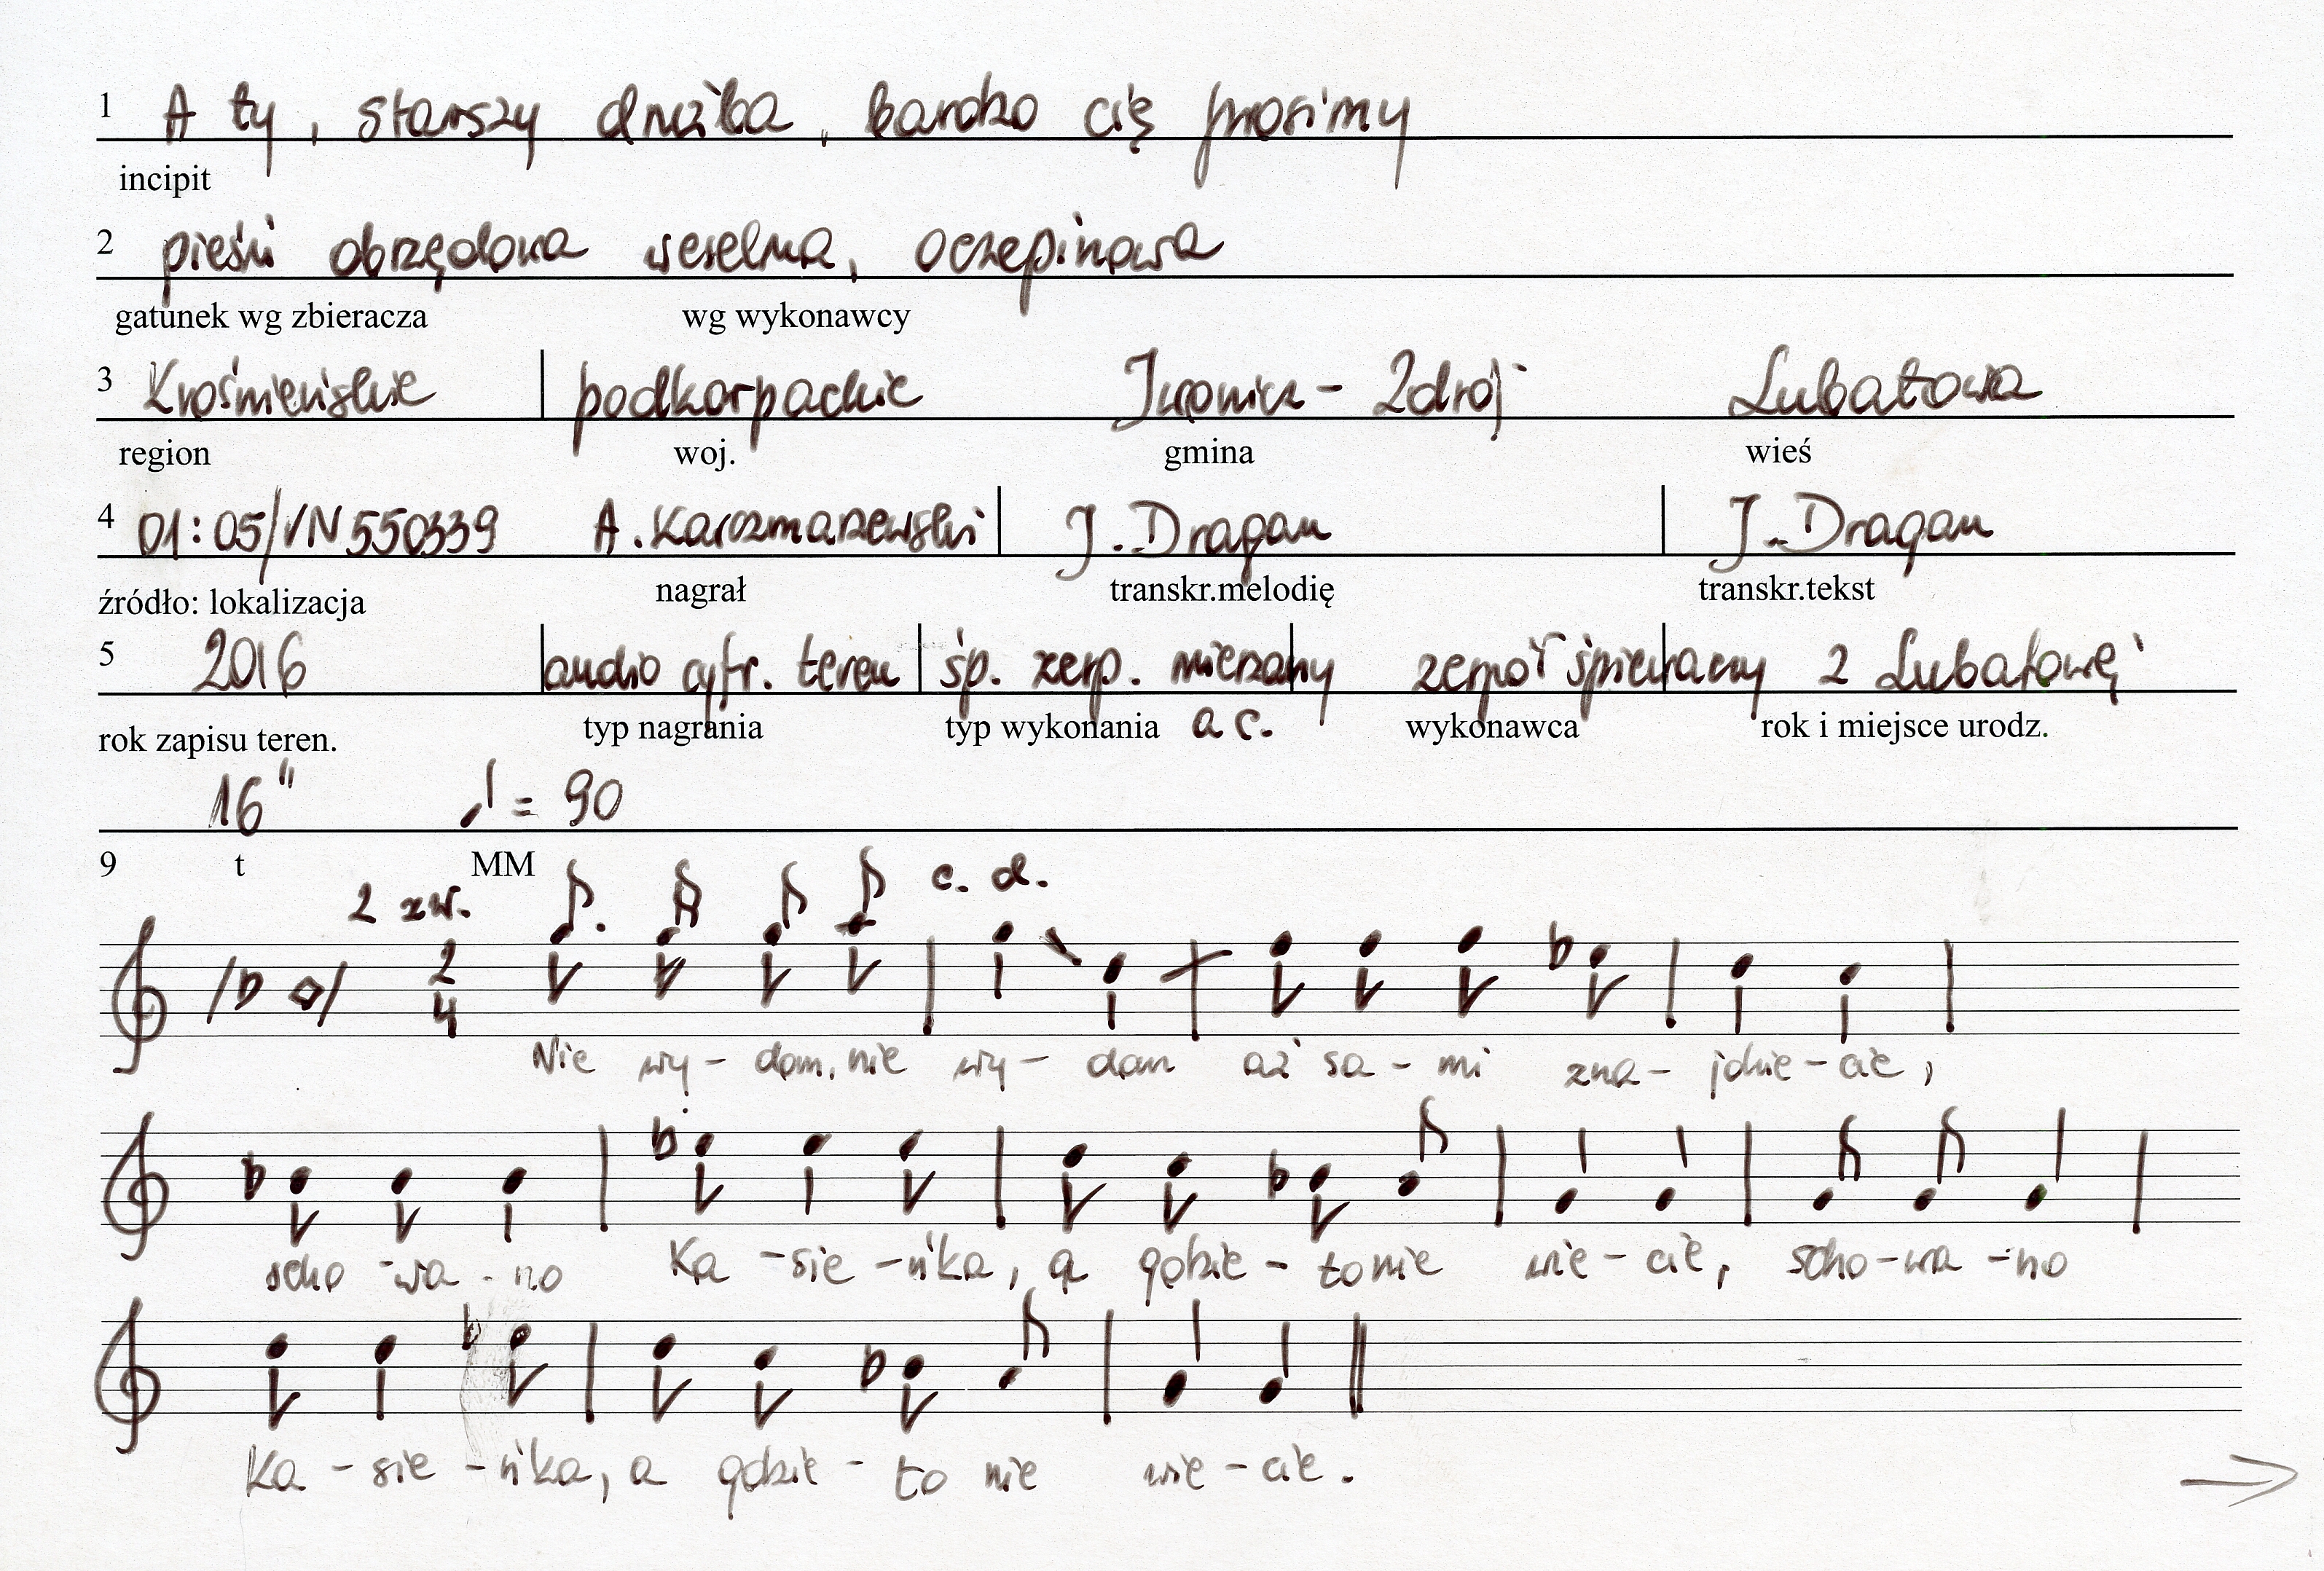 1 A ty, starszy drużba, bardzo cię prosimy
incipit
2 pieśń obrzędowa weselna, oczepinowa
gatunek wg zbieracza wg wykonawcy
3 Krośnieńskie podkarpackie Iwonicz-Zdrój Lubatowa
region woj. gmina wieś
4 01:05/VN550339 A. Karczmarzewski J. Dragan J. Dragan
źródło: lokalizacja nagrał transkr.melodię transkr.tekst
5 2016 audio cyfr. teren śp. zesp. mieszany zespół śpiewany z Lubatowej
rok zapisu teren. typ nagrania typ wykonania a c. wykonawca rok i miejsce urodz.
16" = 90
9 t MM
2 zw. c. d.
2
4
Nie wy-dam, nie wy-dam aż sa-mi zna-jdzie-cie,
scho-wa-no Ka-sie-ńka, a gdzie-to nie wie-cie, scho-wa-no
Ka-sie-ńka, a gdzie-to nie wie-cie.